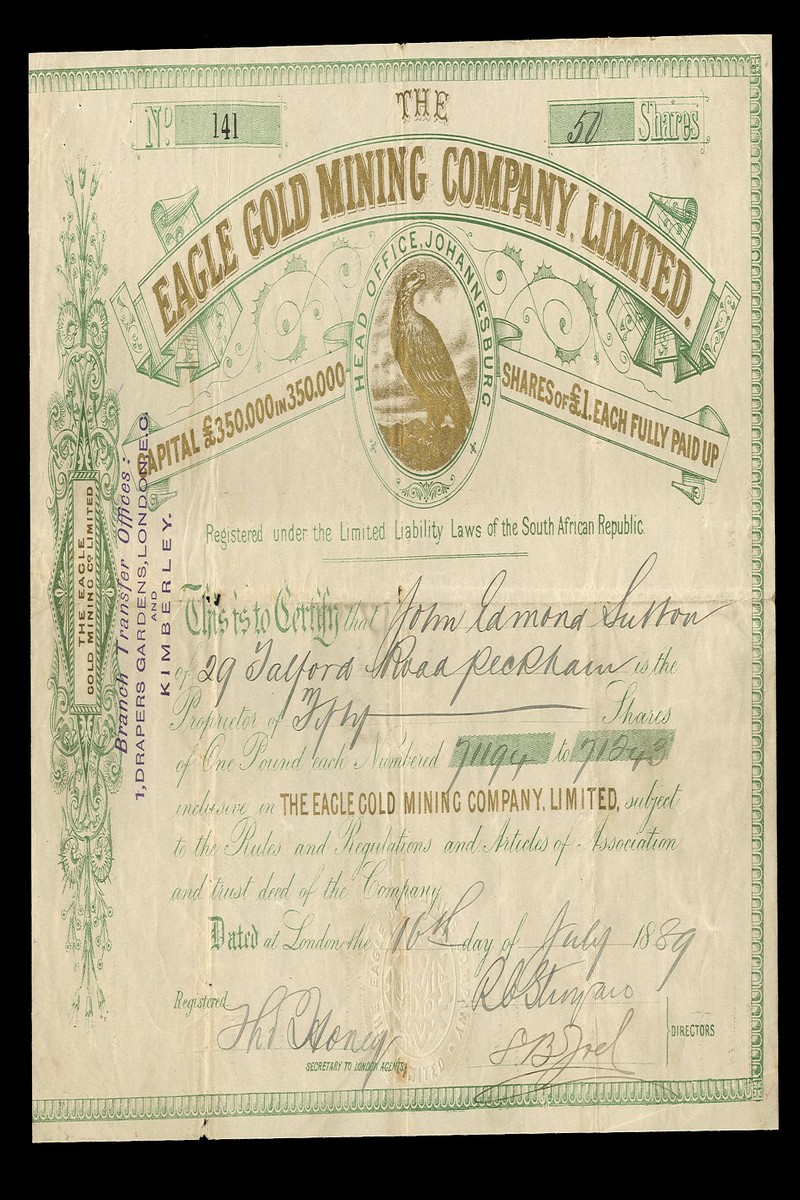 THE
No. 141
50 Shares
EAGLE GOLD MINING COMPANY, LIMITED.
HEAD OFFICE, JOHANNESBURG
CAPITAL £350,000 IN 350,000
SHARES OF £1. EACH FULLY PAID UP
Registered under the Limited Liability Laws of the South African Republic.
This is to Certify that John Edmond Sutton
of 29 Talford Road Peckham is the
Proprietor of Fifty Shares
of One Pound each Numbered 71194 to 71243
inclusive in THE EAGLE GOLD MINING COMPANY, LIMITED, subject
to the Rules and Regulations and Articles of Association
and trust deed of the Company
Dated at London the 16th day of July 1889
Registered
SECRETARY TO LONDON AGENTS
S.B. Joel
DIRECTORS
THE EAGLE
GOLD MINING CO LIMITED
Branch Transfer Offices:
1, DRAPERS GARDENS, LONDON. E.C.
AND
KIMBERLEY.